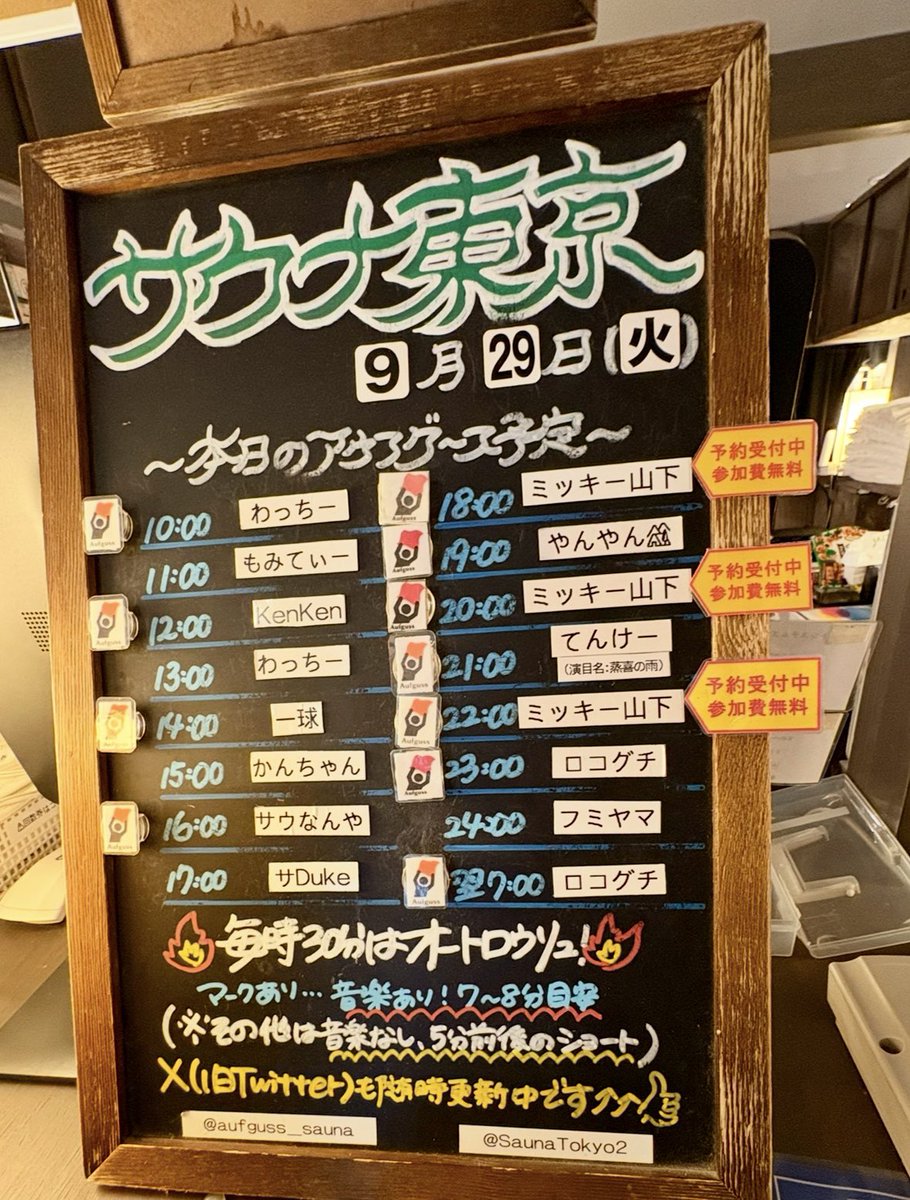 サウナ東京
9月29日(火)
～本日のアウフグース予定～
10:00 わっちー
11:00 もみてぃー
12:00 KenKen
13:00 わっちー
14:00 一球
15:00 かんちゃん
16:00 サウなんや
17:00 サDuke
18:00 ミッキー山下
予約受付中
参加費無料
19:00 やんやん
20:00 ミッキー山下
予約受付中
参加費無料
21:00 てんけー
(演目名:蒸喜の雨)
22:00 ミッキー山下
予約受付中
参加費無料
23:00 ロコグチ
24:00 フミヤマ
翌7:00 ロコグチ
Aufguss
Aufguss
Aufguss
Aufguss
Aufguss
Aufguss
Aufguss
Aufguss
Aufguss
Aufguss
Aufguss
毎時30分はオートロウリュ!
マークあり…音楽あり!7～8分目安
(※その他は音楽なし、5分前後のショート)
X(旧Twitter)も随時更新中です↑↑
@aufguss__sauna
@SaunaTokyo2